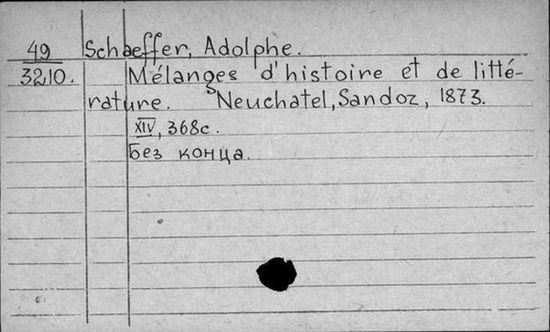 49 Schaeffer, Adolphe.
3210. Mélanges d'histoire et de litté-
rature. Neuchatel, Sandoz, 1873.
XIV, 368с.
Без конца.